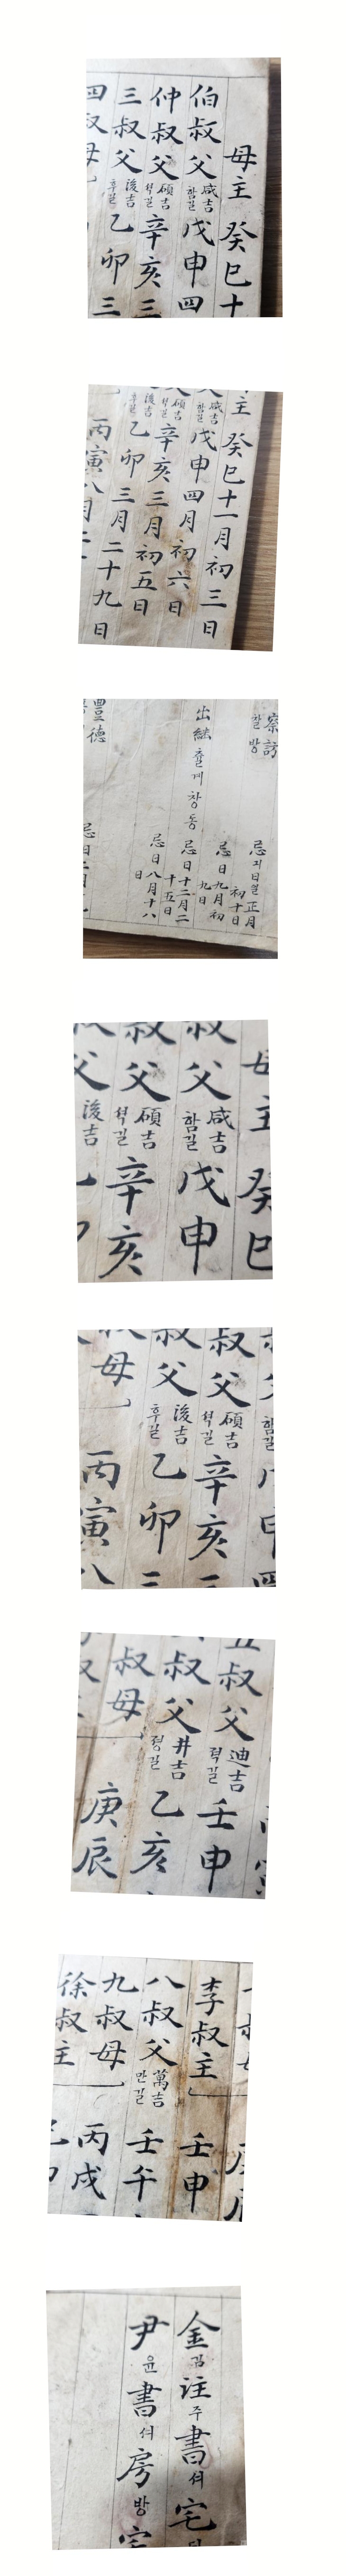 母主 癸巳十
伯叔父 咸吉 함길 戊申四
仲叔父 碩吉 셕길 辛亥三
三叔父 浚吉 후길 乙卯三
四叔母
主 癸巳十一月初三日
咸吉 함길 戊申四月初六日
碩吉 셕길 辛亥三月初五日
浚吉 후길 乙卯三月二十九日
丙寅八月二
察訪 찰방
忌 긔日일 正月初十日
忌日 九月初九日
出繼 출계 창동
忌日 十二月二十五日
忌日 八月十八日
豊德
忌日
母主 癸巳
叔父 咸吉 함길 戊申
叔父 碩吉 셕길 辛亥
父 浚吉
함길
叔父 碩吉 셕길 辛亥
叔父 浚吉 후길 乙卯
叔母 丙寅八
五叔父 迪吉 젹길 壬申
叔父 井吉 졍길 乙亥
叔母 庚辰
李叔主 壬申
八叔父 萬吉 만길 壬午
九叔母 丙戌
徐叔主
金김註주書셔宅
尹윤書셔房방宅